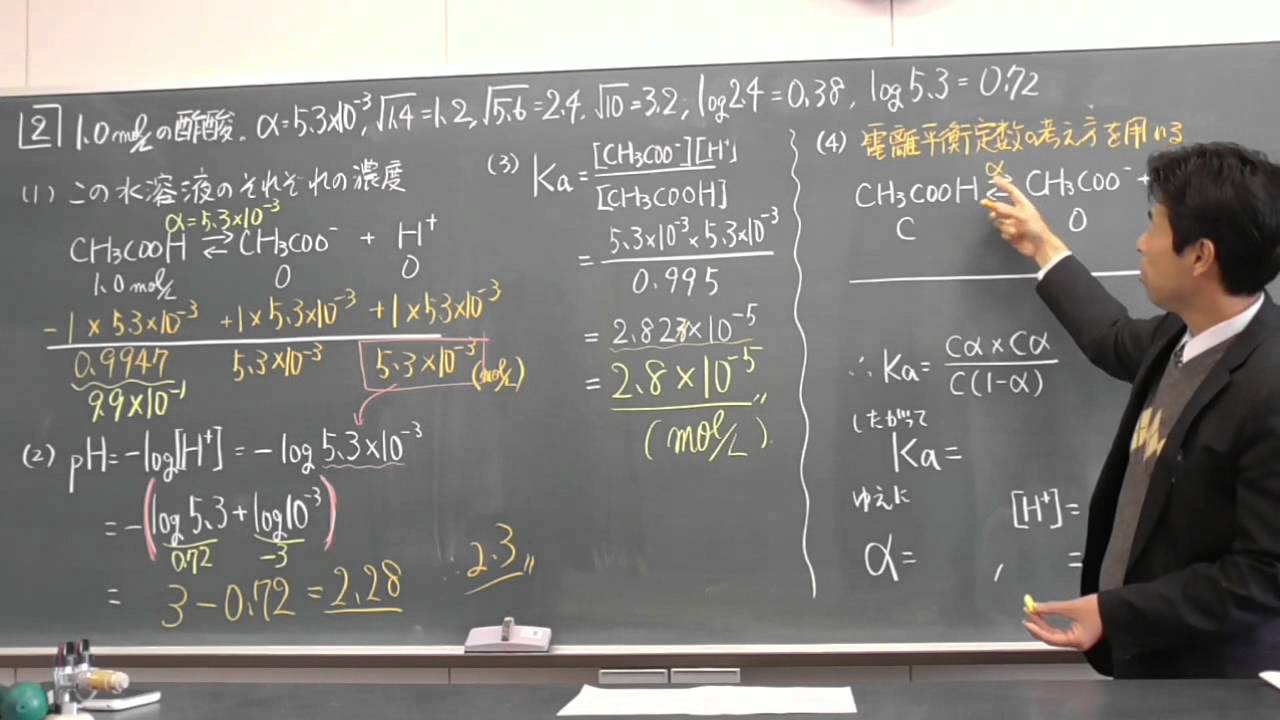 2 1.0mol/Lの酢酸. α=5.3×10⁻³, √1.4=1.2, √5.6=2.4, √10=3.2, log2.4=0.38, log5.3=0.72
(1) この水溶液のそれぞれの濃度
α=5.3×10⁻³
CH₃COOH ⇄ CH₃COO⁻ + H⁺
1.0mol/L 0 0
-1×5.3×10⁻³ +1×5.3×10⁻³ +1×5.3×10⁻³
0.9947 5.3×10⁻³ 5.3×10⁻³ (mol/L)
9.9×10⁻¹
(2) pH=-log[H⁺]=-log5.3×10⁻³
=-(log5.3+log10⁻³)
0.72 -3
= 3-0.72=2.28 ∴2.3〃
(3) Ka=[CH₃COO⁻][H⁺]/[CH₃COOH]
=5.3×10⁻³×5.3×10⁻³/0.995
=2.823×10⁻⁵
=2.8×10⁻⁵〃
(mol/L).
(4) 電離平衡定数の考え方を用いる
α
CH₃COOH ⇄ CH₃COO⁻ +
C 0
∴Ka=Cα×Cα/C(1-α)
したがって
Ka=
ゆえに [H⁺]=
α= , =